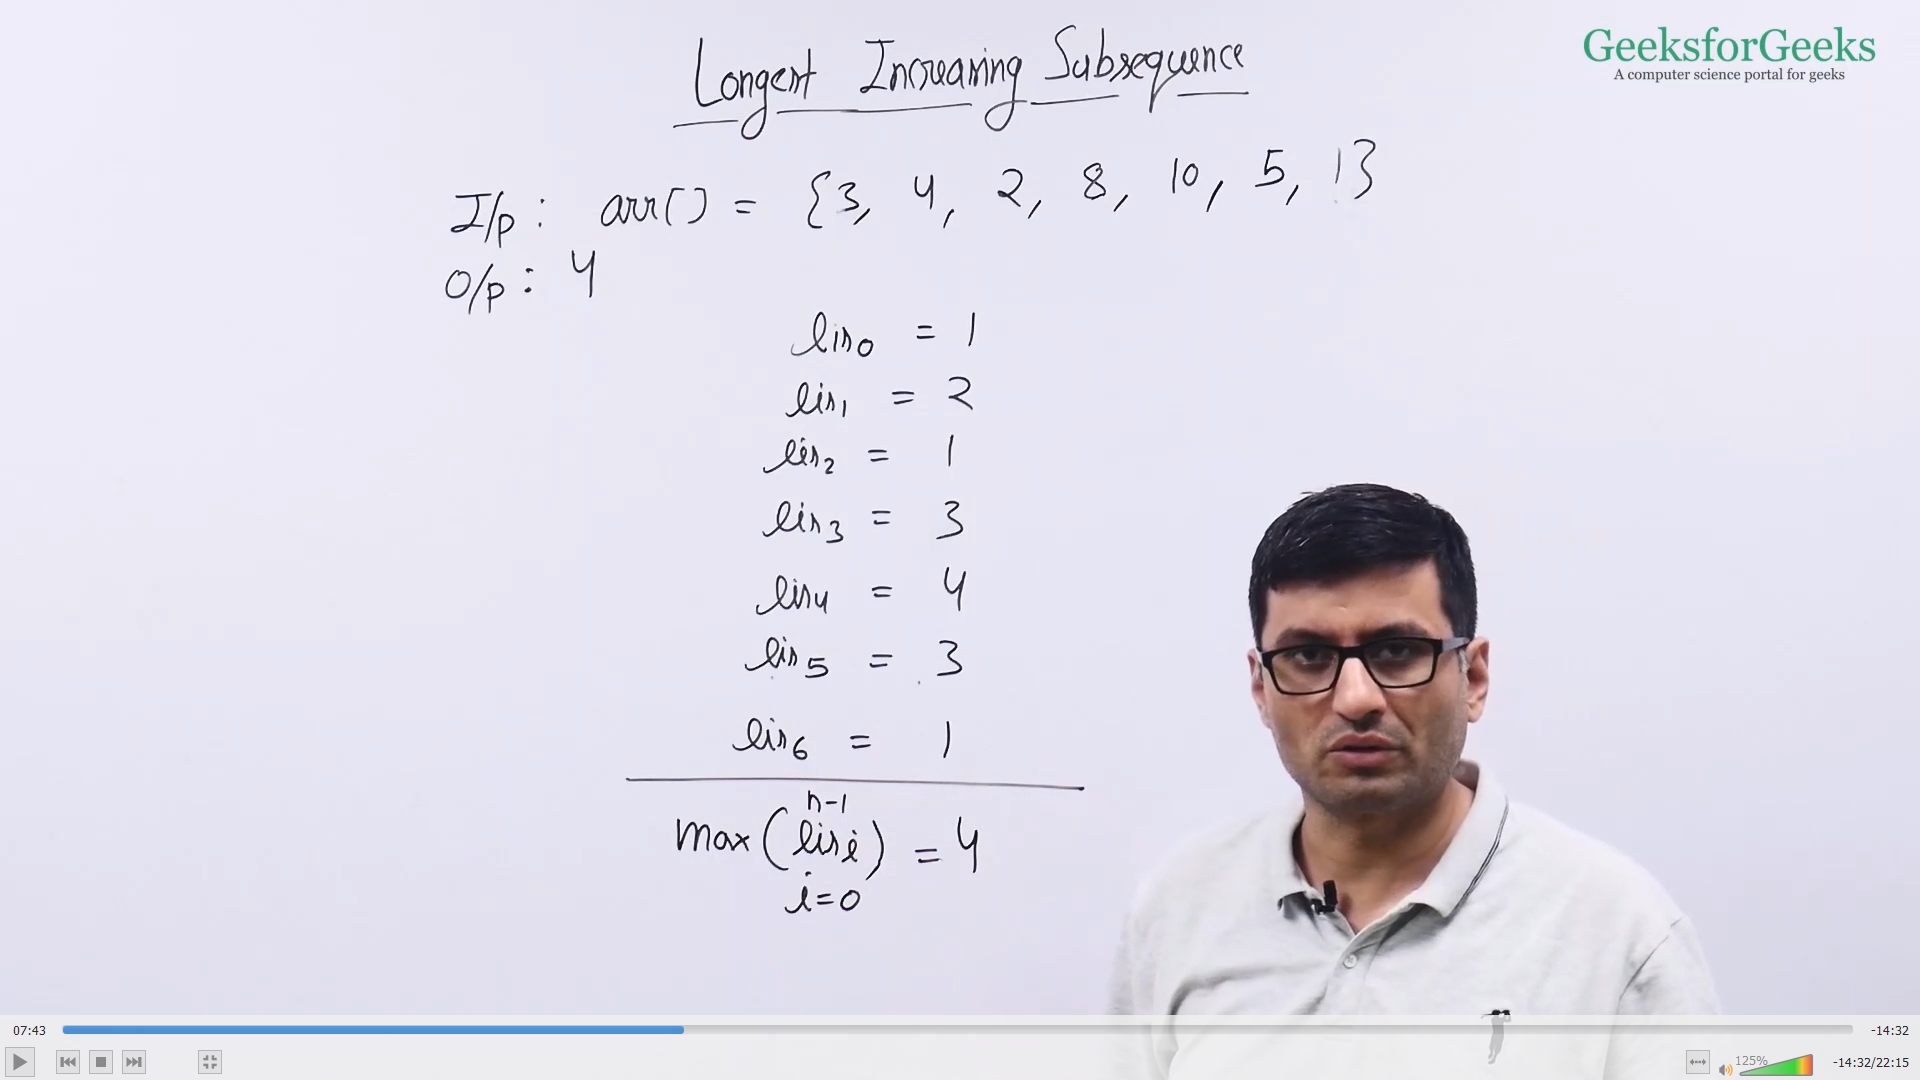 GeeksforGeeks
A computer science portal for geeks
Longest Increasing Subsequence
I/p : arr[] = {3, 4, 2, 8, 10, 5, 1}
O/p : 4
lis0 = 1
lis1 = 2
lis2 = 1
lis3 = 3
lis4 = 4
lis5 = 3
lis6 = 1
n-1
max(lisi) = 4
i=0
07:43
-14:32
125%
-14:32/22:15